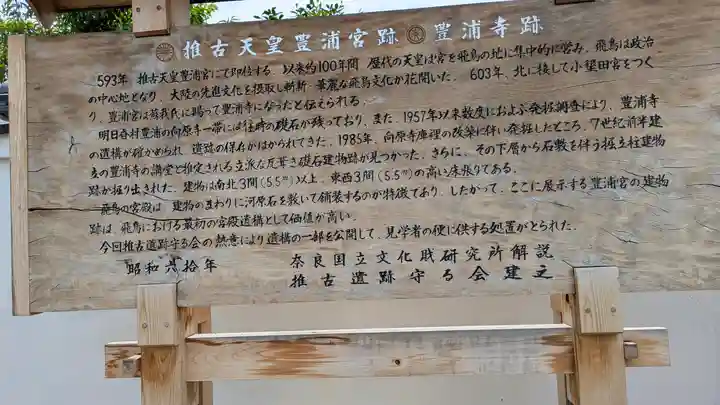 推古天皇豊浦宮跡 豊浦寺跡
593年 推古天皇豊浦宮にて即位する。以来約100年間 歴代の天皇は宮を飛鳥の地に集中的に営み、飛鳥は政治
の中心地となり、大陸の先進文化を摂取し斬新・華麗な飛鳥文化が花開いた。603年、北に接して小墾田宮をつく
り、豊浦宮は蘇我氏に賜って豊浦寺になったと伝えられる。
明日香村豊浦の向原寺一帯には往時の礎石が残っており、また、1957年以来数度におよぶ発掘調査により、豊浦寺
の遺構が確かめられ 遺跡の保存がはかられてきた。1985年、向原寺庫裡の改築に伴い発掘したところ、7世紀前半建
立の豊浦寺の講堂と推定される立派な瓦葺き礎石建物跡が見つかった。さらに、その下層から石敷を伴う掘立柱建物
跡が掘り出された。建物は南北3間(5.5m)以上、東西3間(5.5m)の高い床張りである。
飛鳥の宮殿は 建物のまわりに河原石を敷いて舗装するのが特徴であり、したがって、ここに展示する豊浦宮の建物
跡は、飛鳥における最初の宮殿遺構として価値が高い。
今回推古遺跡守る会の熱意により遺構の一部を公開して、見学者の便に供する処置がとられた。
昭和六拾年 奈良国立文化財研究所解説
推古遺跡守る会建之